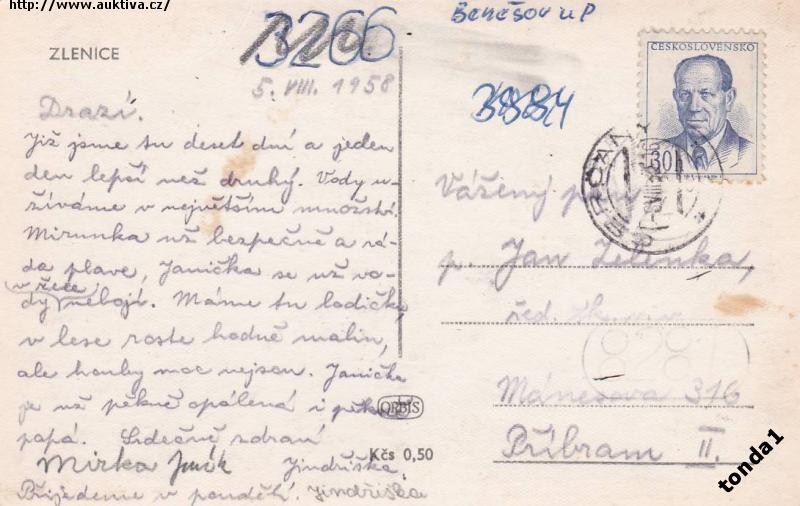 http://www.auktiva.cz/
ZLENICE
3266
5. VIII. 1958
Drazí.
Již jsme tu deset dní a jeden
den lepší než druhý. Vody u-
žíváme v největším množství.
Mirunka už bezpečně a rá-
da plave, Janička se už vo-
v řece
dy nebojí. Máme tu lodičku,
v lese roste hodně malin,
ale houby moc nejsou. Janička
je už pěkně opálená i pěkně
papá. Srdečně zdraví
Mirka Jindřiška
Přijedeme v pondělí. Jindřiška
ORBIS
Kčs 0,50
Benešov u P
3884
ČESKOSLOVENSKO
30h
PEČERADY
Vážený pan
p. Jan Zelinka,
řed. šk. v v.
Mánesova 316
Příbram II.
tonda1